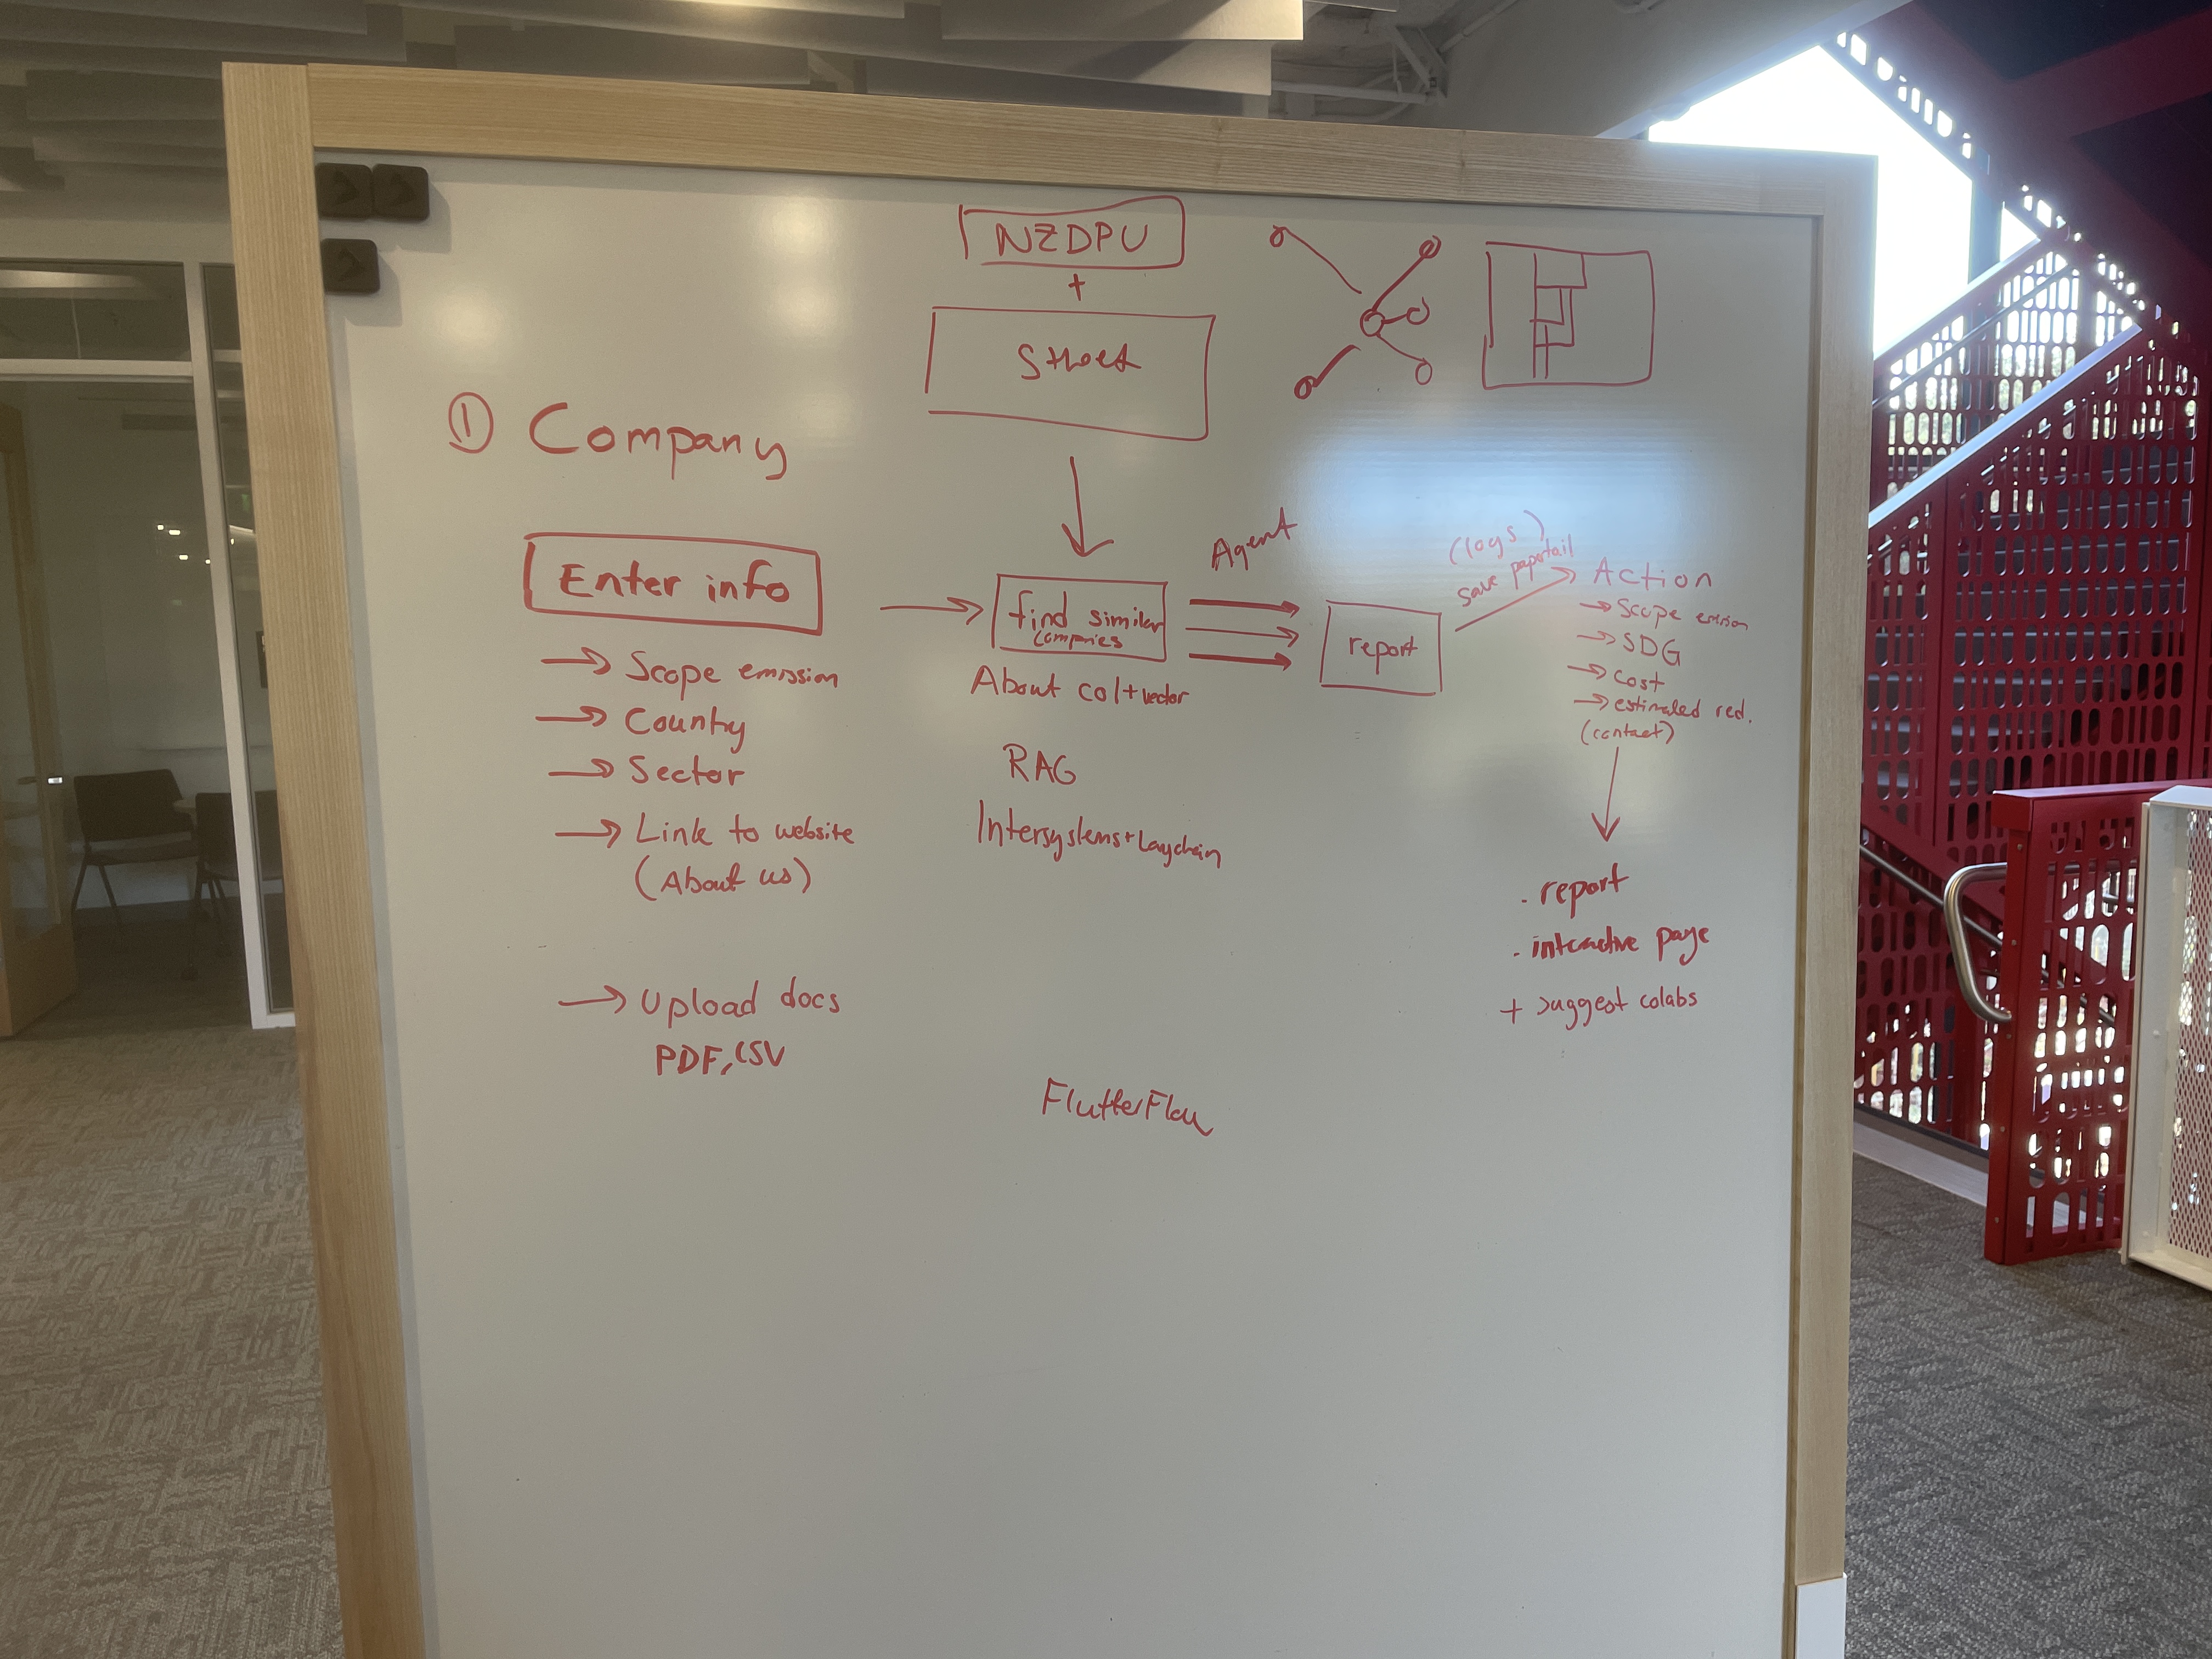 NZDPU
+
① Company
Enter info
→ Scope emission
→ Country
→ Sector
→ Link to website
(About us)
→ Upload docs
PDF, CSV
find similar
companies
About col + vector
RAG
Intersystems +
FlutterFlow
Agent
report
(logs)
save
Action
→ Scope emission
→ SDG
→ cost
→ estimated red.
(contact)
. report
. interactive page
+ suggest colabs